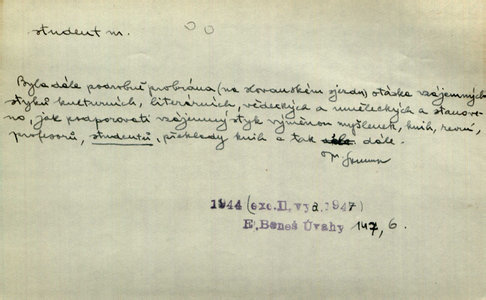 student m.
Byla dále podrobně probírána (na slovanském sjezdu) otázka vzájemných
styků kulturních, literárních, vědeckých a uměleckých a stanove-
no, jak podporovati vzájemný styk výměnou myšlenek, knih, revuí,
profesorů, studentů, překlady knih a tak dále.
1944 (exc. II, vyd. 1947)
E. Beneš Úvahy 147, 6.